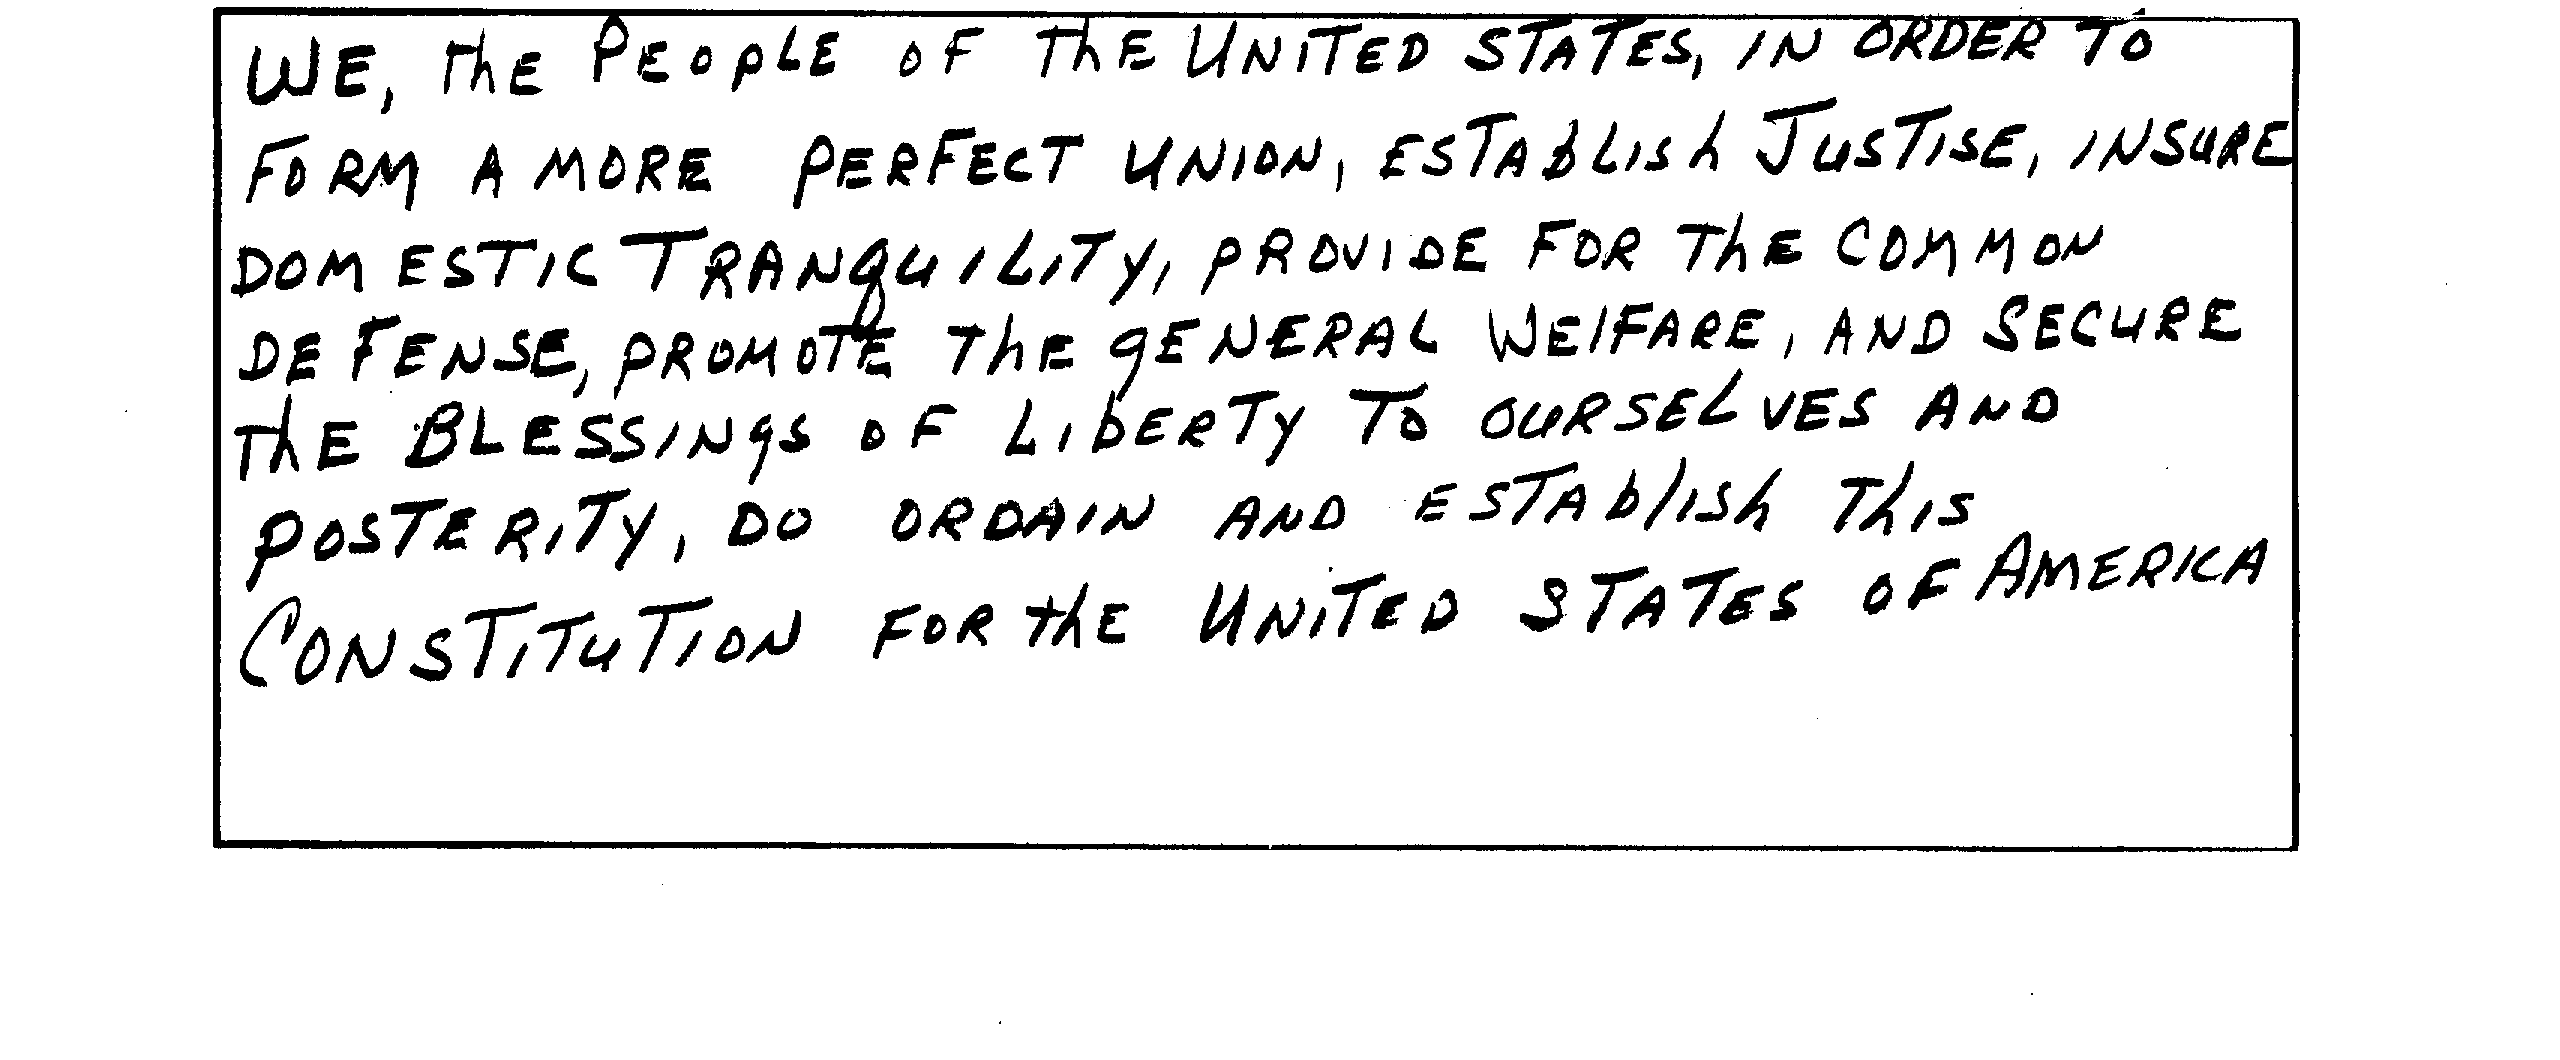 WE, thE PEOPLE OF ThE UNITED STATES, IN ORDER TO
FORM A MORE PERFECT UNION, ESTAbLISh JUSTISE, INSURE
DOMESTIC TRANqUILITY, PROVIDE FOR ThE COMMON
DEFENSE, PROMOTE ThE gENERAL WElFARE, AND SECURE
ThE BLESSINgS OF LIbERTY TO OURSELVES AND
POSTERITY, DO ORDAIN AND ESTAblISh ThIS
CONSTITUTION FOR thE UNITED STATES OF AMERICA